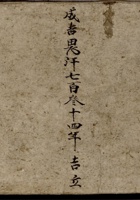 成吉思汗七百叁十四年吉立